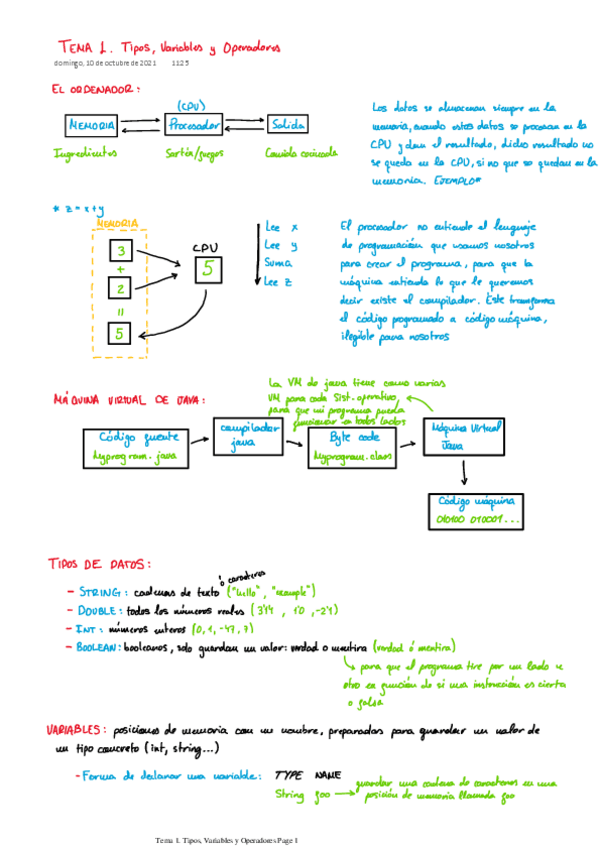 TEMA 1. Tipos, Variables y Operadores
domingo, 10 de octubre de 2021 11:25
EL ORDENADOR:
(CPU)
MEMORIA
Procesador
Salida
Ingredientes
Sartén/fuegos
Comida cocinada
Los datos se almacenan siempre en la
memoria, cuando estos datos se procesan en la
CPU y dan el resultado, dicho resultado no
se queda en la CPU, si no que se quedan en la
memoria. EJEMPLO*
* z = x+y
MEMORIA
3
+
2
=
5
CPU
5
Lee x
Lee y
Suma
Lee z
El procesador no entiende el lenguaje
de programación que usamos nosotros
para crear el programa, para que la
máquina entienda lo que le queremos
decir existe el compilador. Éste transforma
el código programado a código máquina,
ilegible para nosotros
MÁQUINA VIRTUAL DE JAVA:
La VM de java tiene como varias
VM para cada Sist. operativo,
para que mi programa pueda
funcionar en todos lados
Código fuente
Myprogram.java
compilador
java
Byte code
Myprogram.class
Máquina Virtual
Java
Código máquina
010100 010001...
TIPOS DE DATOS:
- STRING: cadenas de texto ó caracteres ("hello", "example")
- DOUBLE: todos los números reales (3'14, 10, -2'1)
- INT: números enteros (0, 1, -47, 7)
- BOOLEAN: booleanos, solo guardan un valor: verdad o mentira (verdad ó mentira)
para que el programa tire por un lado u
otro en función de si una instrucción es cierta
o falsa
VARIABLES: posiciones de memoria con un nombre, preparadas para guardar un valor de
un tipo concreto (int, string...)
- Forma de declarar una variable: TYPE NAME
String foo
guardar una cadena de caracteres en una
posición de memoria llamada foo
Tema 1. Tipos, Variables y Operadores Page 1